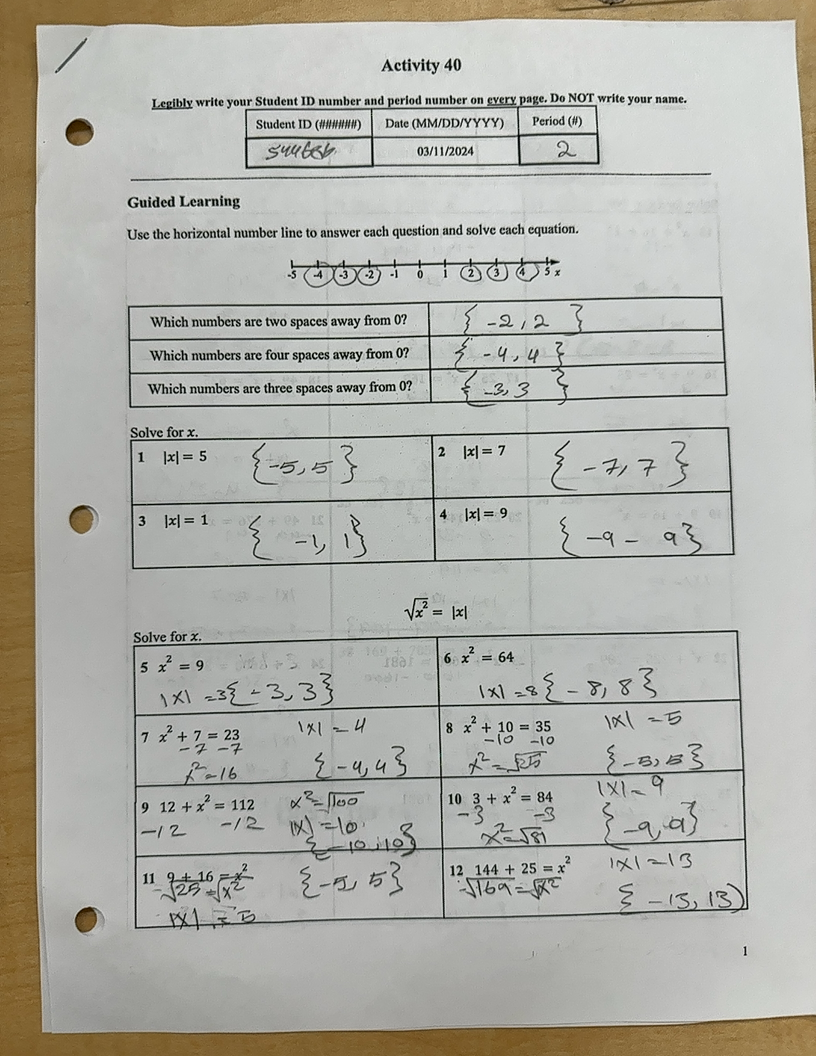 Activity 40
Legibly write your Student ID number and period number on every page. Do NOT write your name.
Student ID (######) Date (MM/DD/YYYY) Period (#)
03/11/2024 2
Guided Learning
Use the horizontal number line to answer each question and solve each equation.
-5 -4 -3 -2 -1 0 1 2 3 4 5 x
Which numbers are two spaces away from 0? { -2, 2 }
Which numbers are four spaces away from 0? { -4, 4 }
Which numbers are three spaces away from 0? { -3, 3 }
Solve for x.
1 |x| = 5 {-5, 5}
2 |x| = 7 {-7, 7}
3 |x| = 1 {-1, 1}
4 |x| = 9 {-9 - 9}
√x² = |x|
Solve for x.
5 x² = 9
|x| = 3 {-3, 3}
6 x² = 64
|x| = 8 {-8, 8}
7 x² + 7 = 23 |x| = 4
-7 -7
x² = 16 {-4, 4}
8 x² + 10 = 35 |x| = 5
-10 -10
x² = √25 {-5, 5}
9 12 + x² = 112 x² = √100
-12 -12 |x| = 10
{-10, 10}
10 3 + x² = 84 |x| = 9
-3 -3 {-9, 9}
x² = √81
11 9 + 16 = x² {-5, 5}
√25 = √x²
|x| = 5
12 144 + 25 = x² |x| = 13
√169 = √x²
{-13, 13)
1